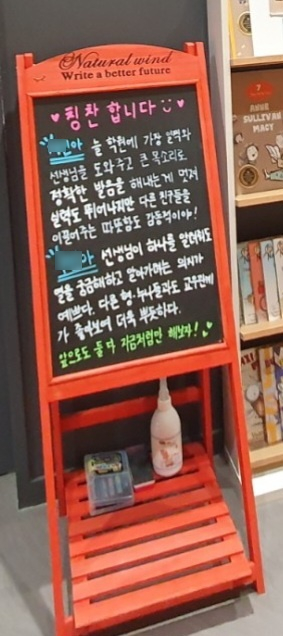 Natural wind
Write a better future
♥칭찬 합니다♥
아 늘 학원에 가장 일찍와
선생님을 도와주고 큰 목소리로
정확한 발음을 해내는게 멋져
실력도 뛰어나지만 다른 친구들을
이끌어주는 따뜻함도 감동적이야!
아 선생님이 하나를 알려줘도
열을 궁금해하고 알아가려는 의지가
예쁘다. 다른 형·누나들과도 교우관계
가 좋아보여 더욱 뿌듯하다.
앞으로도 둘 다 지금처럼만 해보자!
7
ANNE
SULLIVAN
MACY